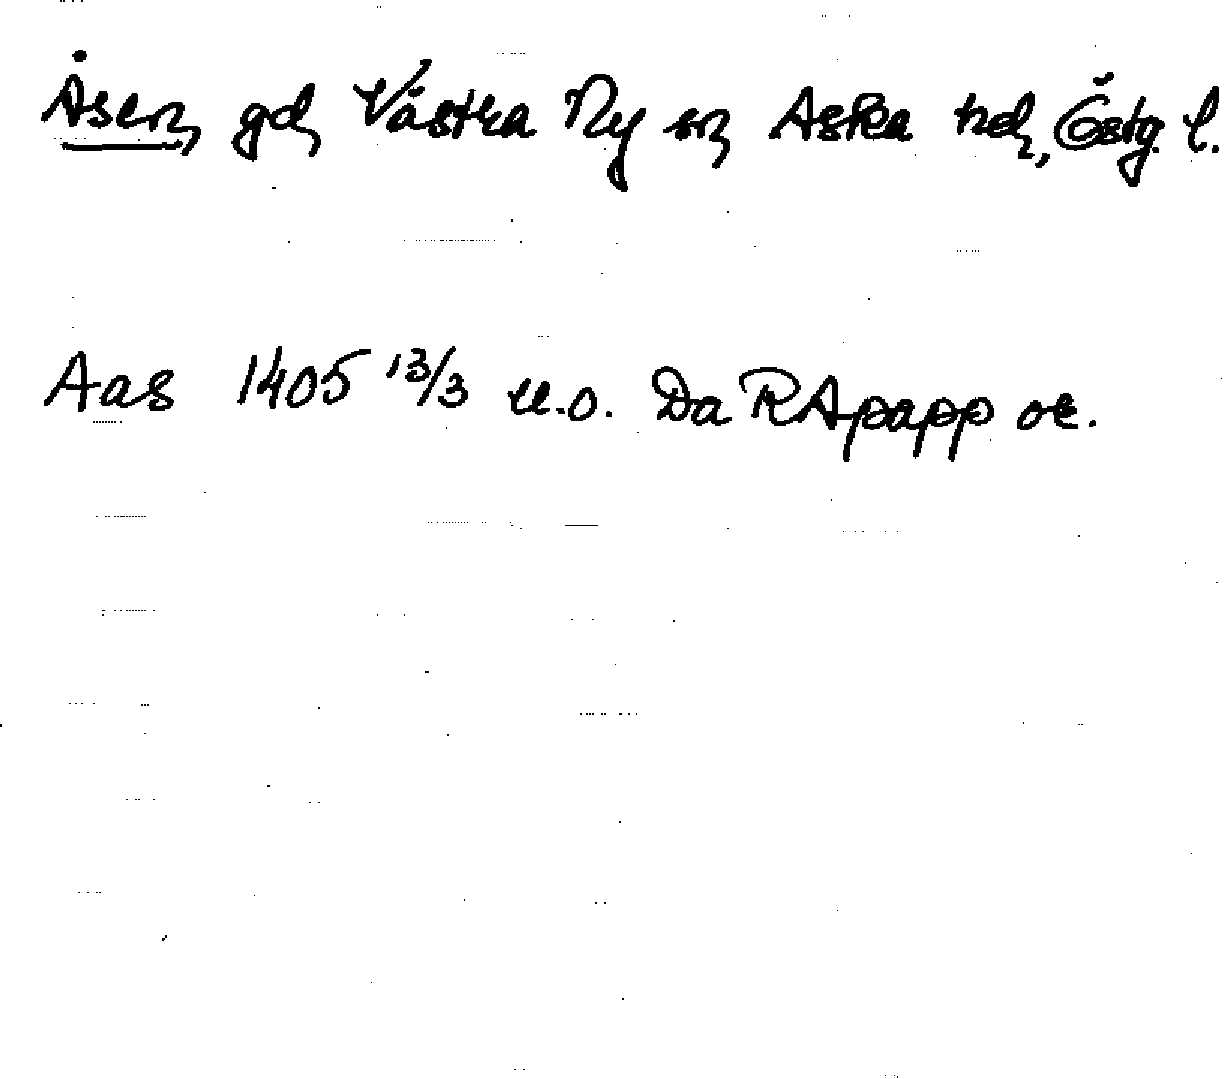 Åsen, gd, Västra Ny sn, Aska hd, Östg. l.
Aas 1405 13/3 u.o. Da RApapp or.